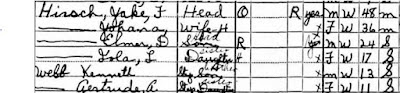 Hirsch, Jake, F Head O R yes M W 48 m
Johana, Wife H yes F W 36 m
Elmer, D Son R x m W 24 S
Lola, L Daughter x F W 17 S
Webb Kenneth Step Son x m W 13 S
Gertrude, A. Step Daughter x F W 11 S